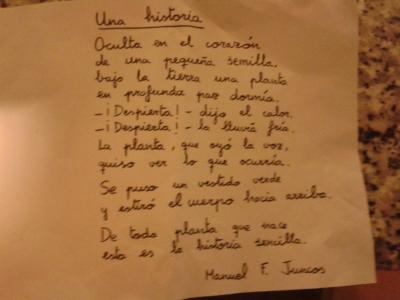 Una historia
Oculta en el corazón
de una pequeña semilla,
bajo la tierra una planta
en profunda paz dormía.
-¡Despierta! - dijo el calor.
-¡Despierta! - la lluvia fría.
La planta, que oyó la voz,
quiso ver lo que ocurría.
Se puso un vestido verde
y estiró el cuerpo hacia arriba.
De toda planta que nace
esta es la historia sencilla.
Manuel F. Juncos